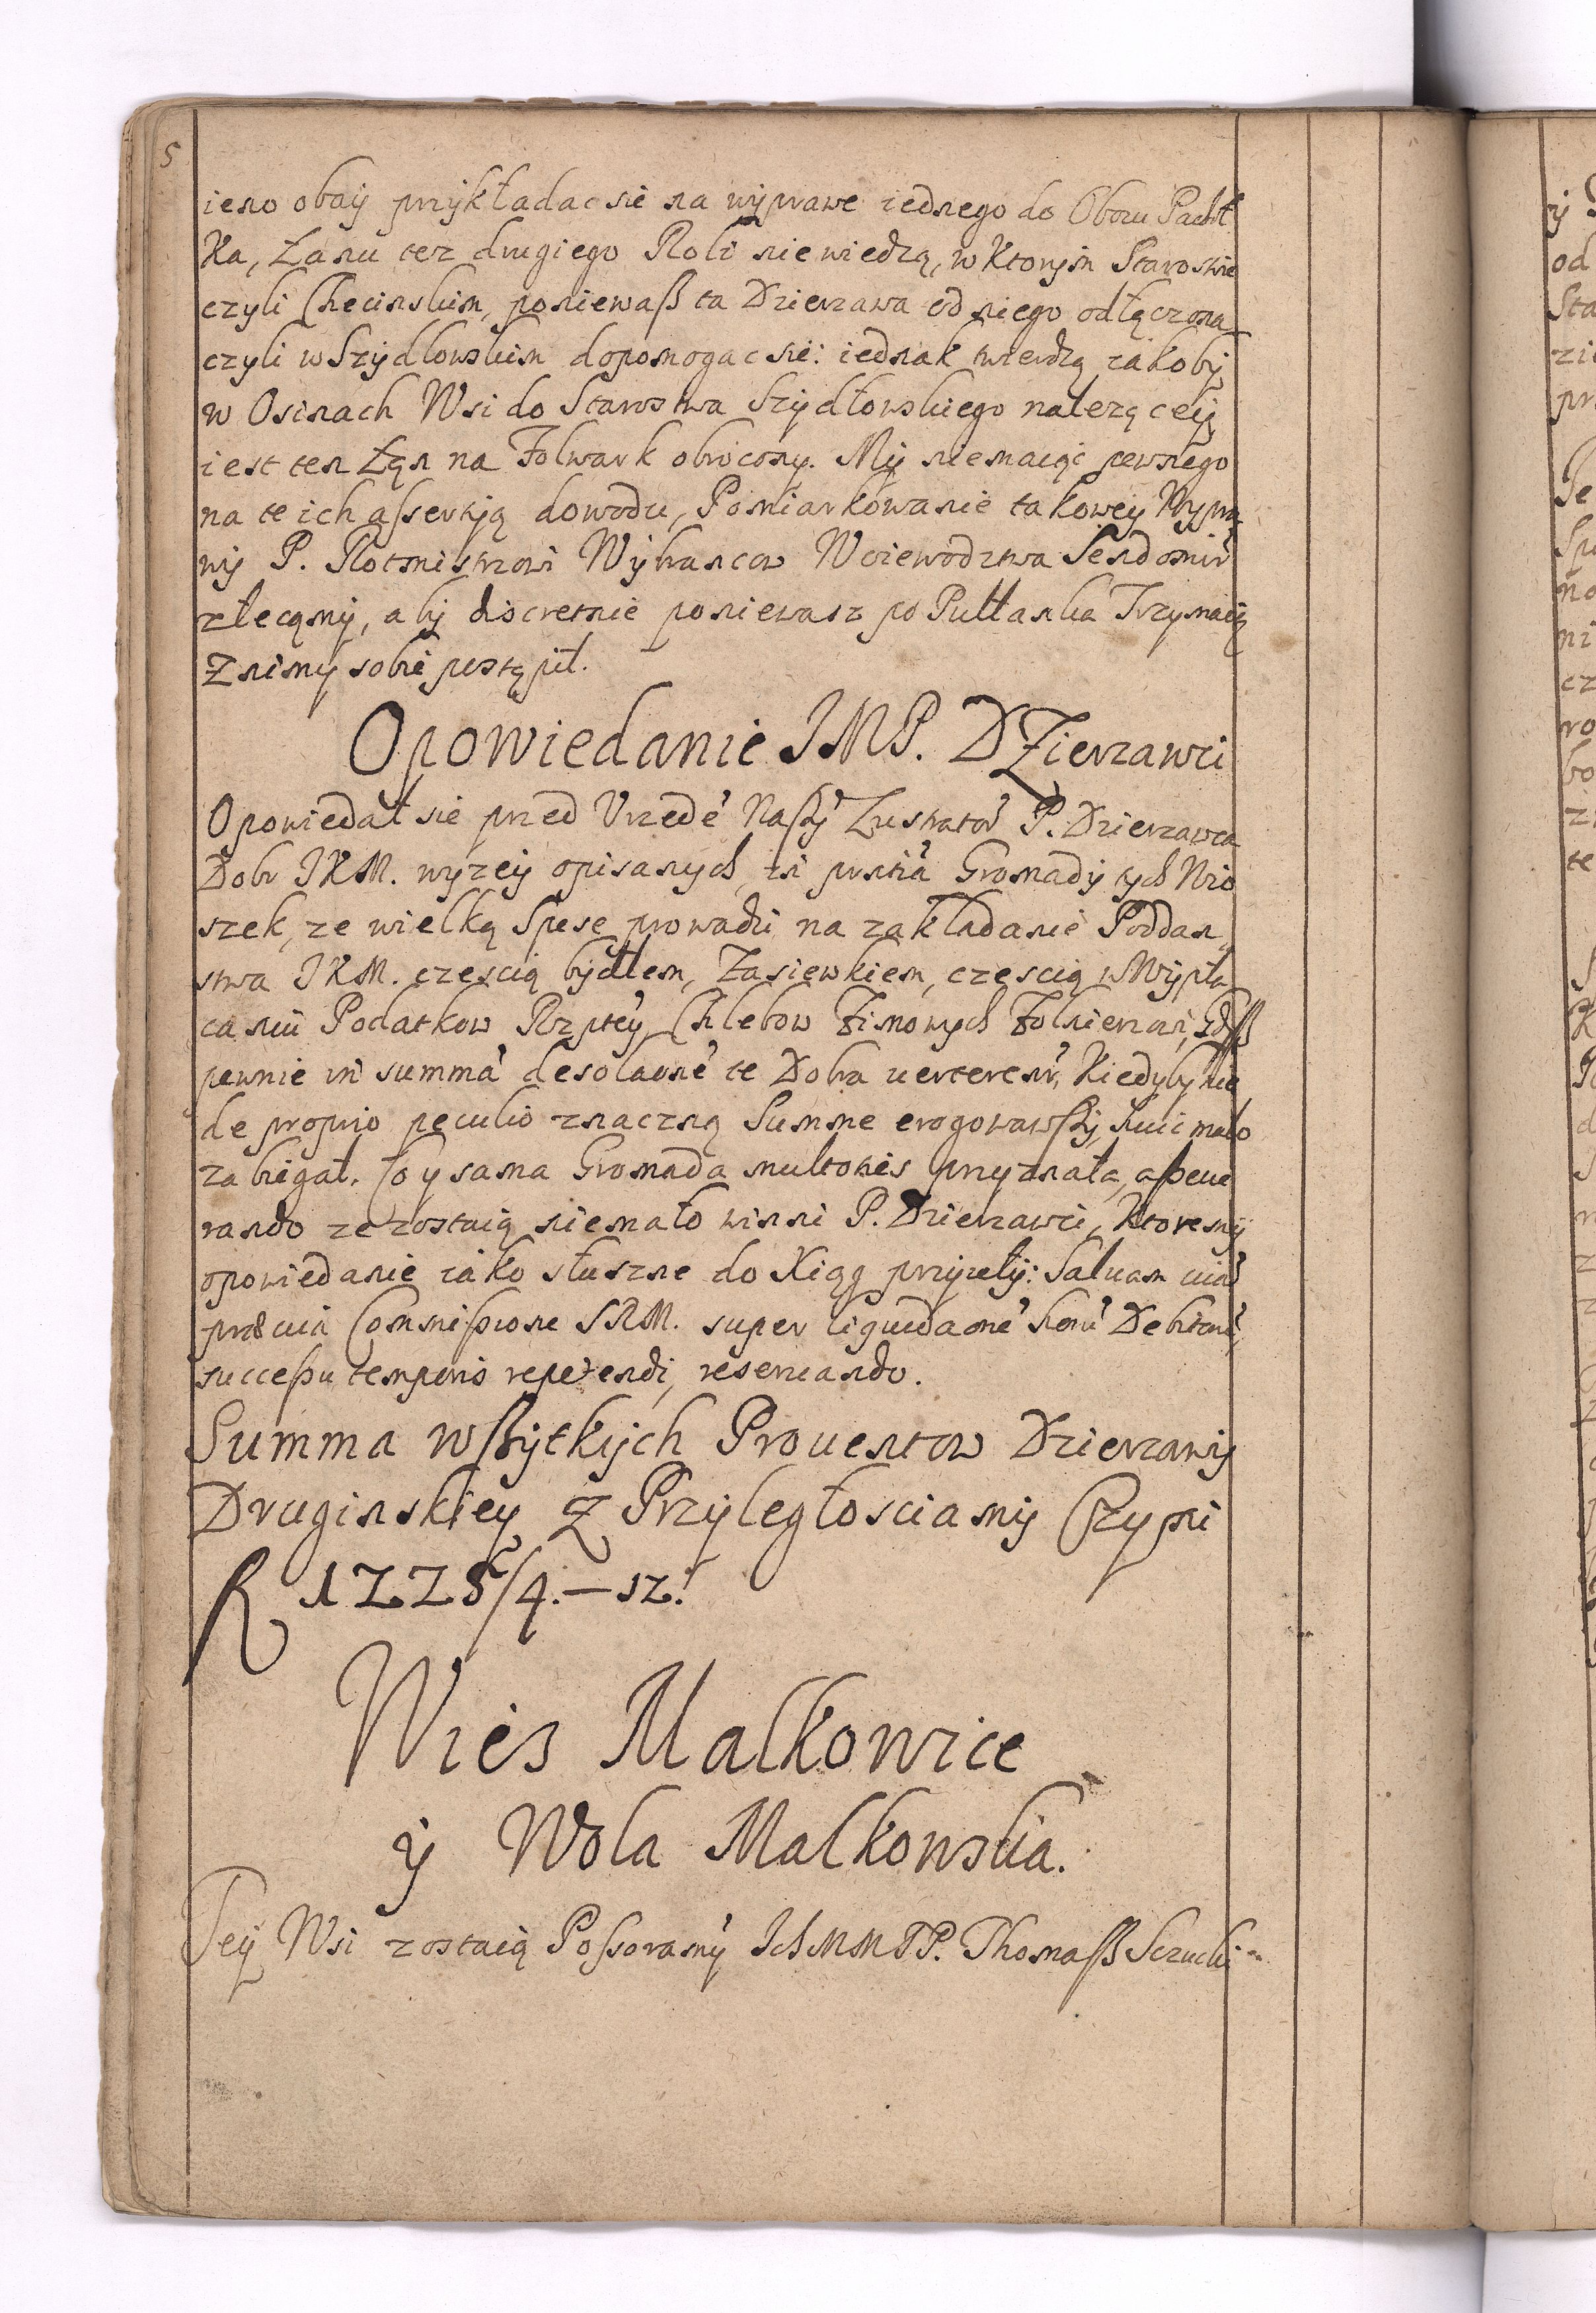 5
ieno obaÿ przÿkładac się na wÿprawe iednego do Obozu Pachoł
ka, Łanu tez drugiego Roli nie wiedzą, w ktorÿm Starostwie
czyli Checinskim, poniewaß ta Dzierzawa od niego odłęczona
czyli w Szÿdlowskim dopomogac się: iednak twierdzą iakobÿ
w Osinach Wsi do Starostwa Szÿdłowskiego naleząceÿ
iest ten Łąn na Folwark obrocony. Mÿ niemaiąc pewnego
na te ich assertÿą dowodu, Pomiarkowanie takoweÿ Wypra
wÿ P. Rotmistrzowi Wÿbrancow Woiewodztwa Sendomir
zlecamÿ, abÿ discretnie poniewasz po Pułłanku Trzymaią
z nimÿ sobie postąpił.
Opowiedanie JMP. Dzierzawci
Opowiedał się przed Vrzedē Naßÿ Lustratorō P. Dzierzawca
Dobr JKM. wyzeÿ opisanych, in pratia Gromadÿ tych Wio
szek, ze wielką Spese prowadzi na zakładanie Poddan
stwa JKM. czescią bydłem, Zasiewkiem, czescią w Wÿpła
caniu Podatkow Rzpteÿ, Chlebow Zimowych Zolnierzowi, gdyß
pewnie in summā desolaonē te Dobra uerterentr, kiedyby nie
de proprio peculio znaczną Summe erogowawßÿ, huic malo
zabiegał. Co y sama Gromada multoties przyznała, asseue
rando ze zostaią niemało winni P. Dzierzawci, Ktore mÿ
opowiedanie iako słuszne do Xiąg przyięlÿ: Saluam
præuia Commissione SRM. super liquidaonē horū Debitorū,
successu temporis repetendi, reseruando.
Summa wßÿtkÿch Prouentow Dzierzawÿ
Druginskiey z Przyległosciamÿ Czyni
R 1225/4.–12.
Wies Malkowice
ÿ Wola Malkowska.
Teÿ Wsi zostaią Possoramÿ Ich MM PP. Thomaß Sczucki